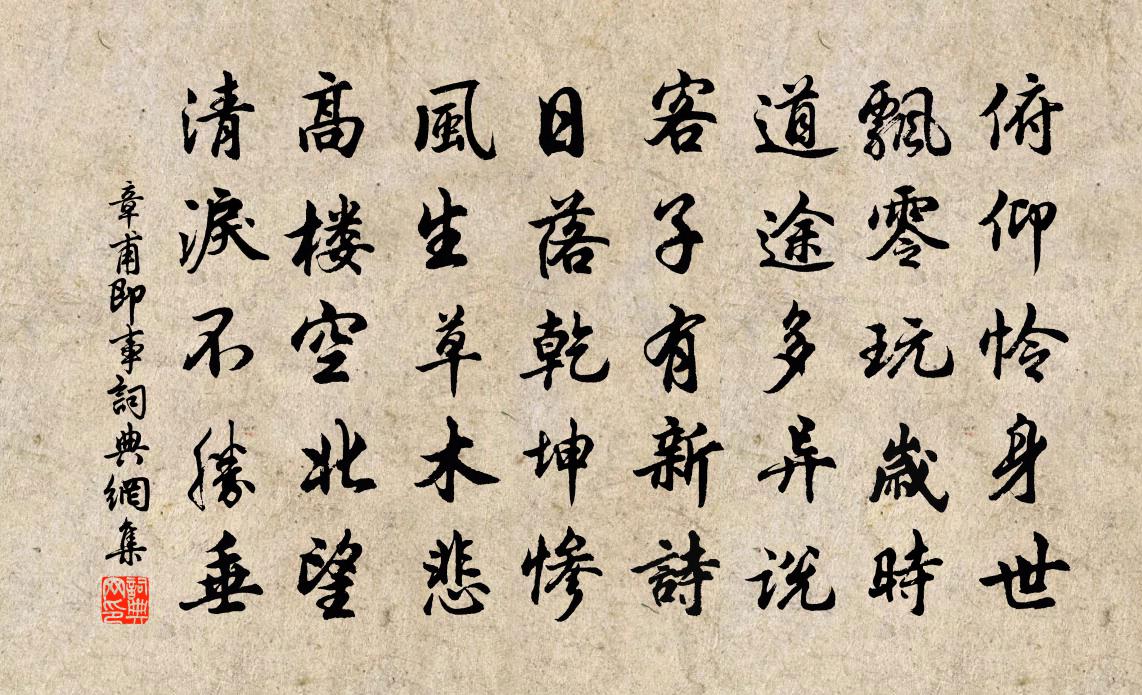 俯仰怜身世
飄零玩歲時
道途多异说
客子有新詩
日落乾坤慘
風生草木悲
高楼空北望
清淚不勝垂
章甫即事詞典網集
詞典网印